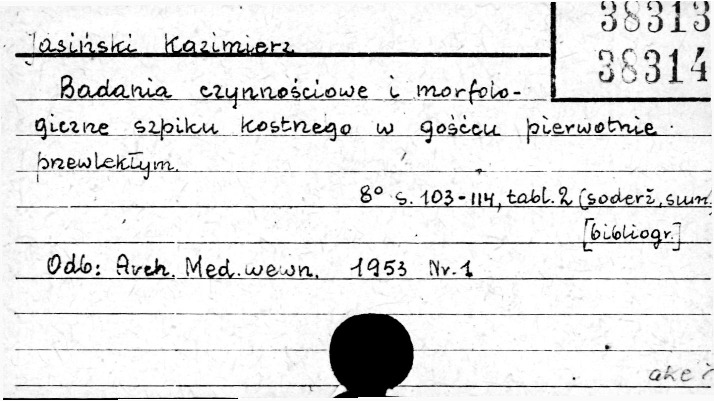 38313
38314
Jasiński Kazimierz
Badania czynnościowe i morfolo-
giczne szpiku kostnego w gośćcu pierwotnie
przewlekłym.
8° s. 103-114, tabl. 2 (soderž, sum
[bibliogr.]
Odb: Arch. Med. wewn. 1953 Nr. 1